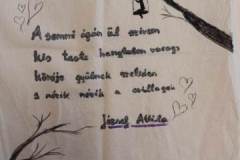 A semmi ágán ül szivem
kis teste hangtalan vacog
köréje gyűlnek szeliden
s nézik nézik a csillagok
József Attila